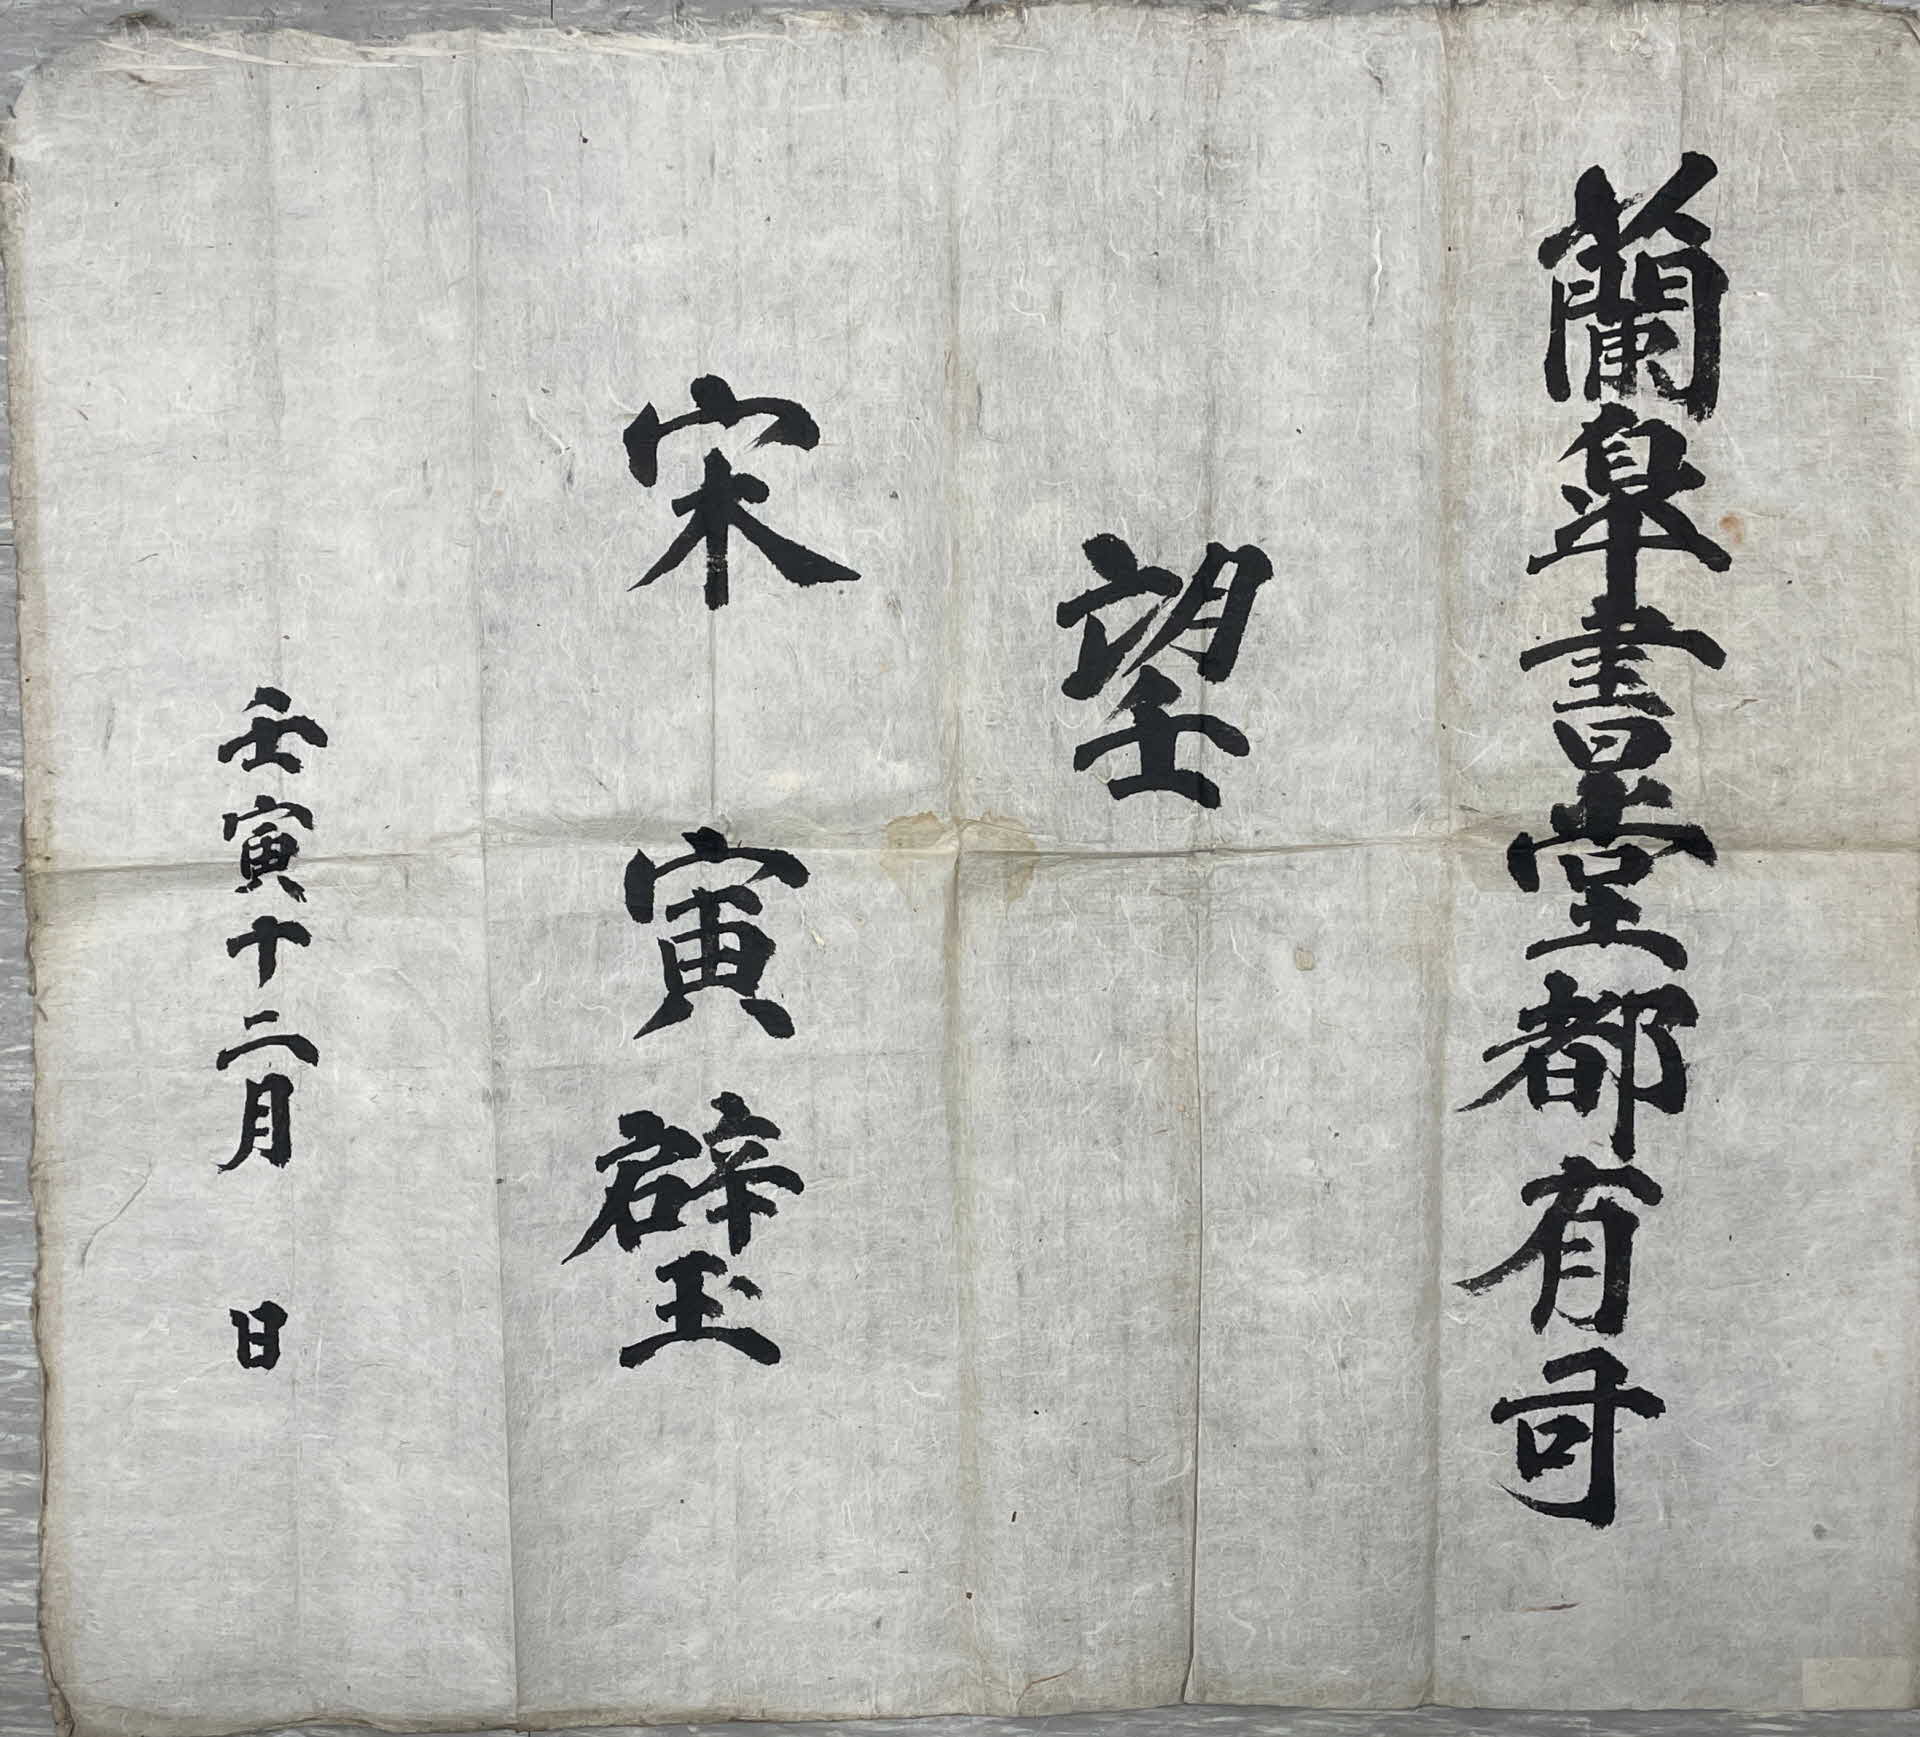 蘭皐書堂都有司
望
宋寅璧
壬寅十二月 日